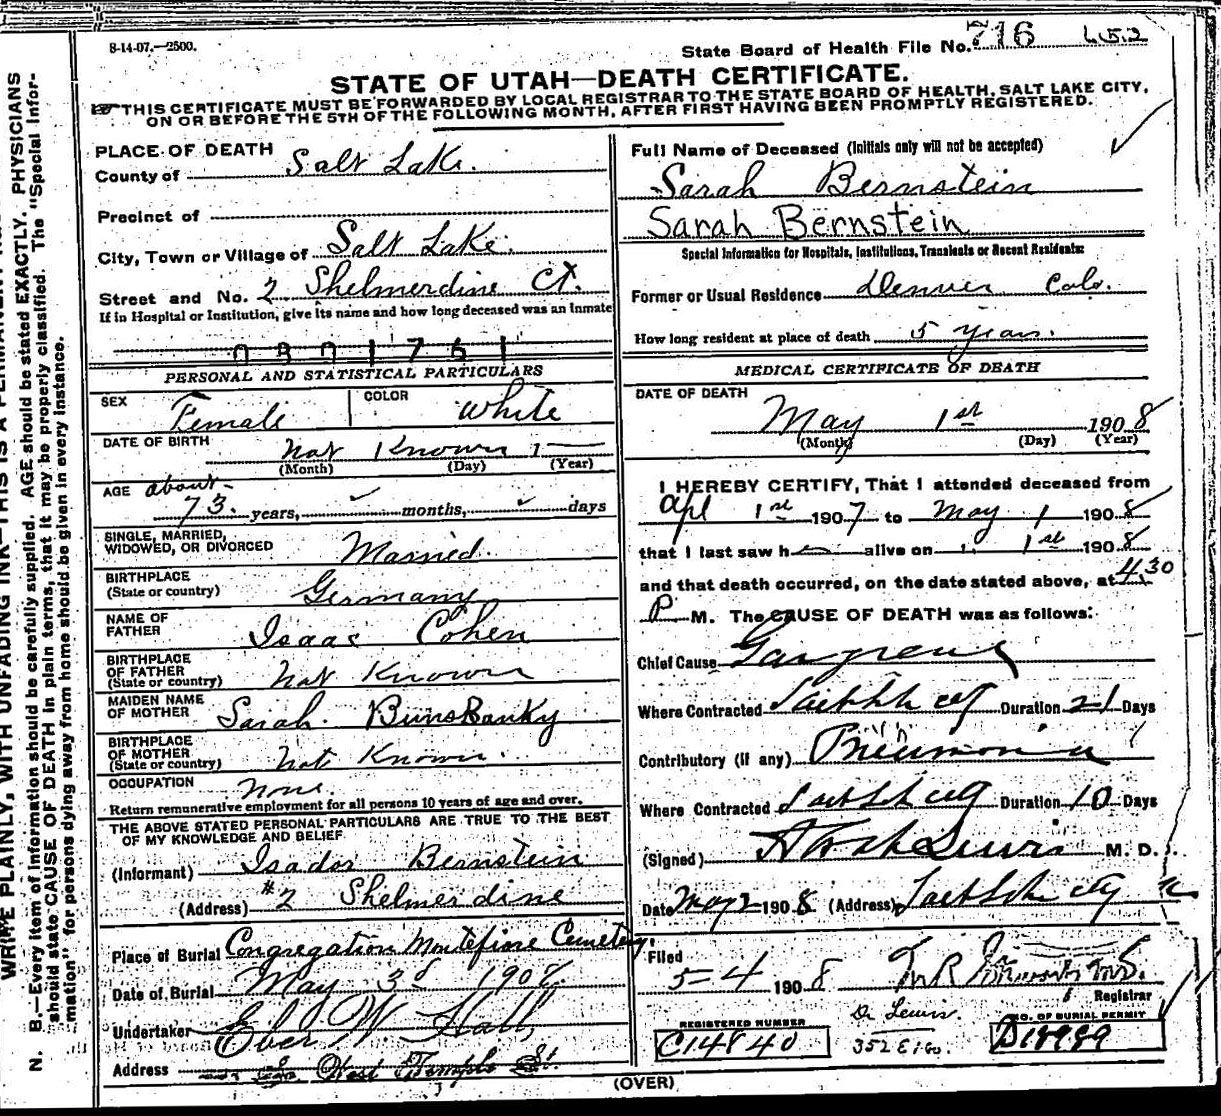 8-14-07.—2500.
State Board of Health File No. 716 452
STATE OF UTAH—DEATH CERTIFICATE.
THIS CERTIFICATE MUST BE FORWARDED BY LOCAL REGISTRAR TO THE STATE BOARD OF HEALTH, SALT LAKE CITY,
ON OR BEFORE THE 5TH OF THE FOLLOWING MONTH, AFTER FIRST HAVING BEEN PROMPTLY REGISTERED.
PLACE OF DEATH
County of Salt Lake.
Precinct of
City, Town or Village of Salt Lake.
Street and No. 2 Shelmerdine Ct.
If in Hospital or Institution, give its name and how long deceased was an inmate
PERSONAL AND STATISTICAL PARTICULARS
SEX Female COLOR White
DATE OF BIRTH Not Known 1
(Month) (Day) (Year)
AGE about
73 years, months, days
SINGLE, MARRIED,
WIDOWED, OR DIVORCED Married.
BIRTHPLACE
(State or country) Germany
NAME OF
FATHER Isaac Cohen
BIRTHPLACE
OF FATHER
(State or country) Not Known
MAIDEN NAME
OF MOTHER Sarah.
BIRTHPLACE
OF MOTHER
(State or country) Not Known.
OCCUPATION None.
Return remunerative employment for all persons 10 years of age and over.
THE ABOVE STATED PERSONAL PARTICULARS ARE TRUE TO THE BEST
OF MY KNOWLEDGE AND BELIEF
(Informant) Isador Bernstein
(Address) #2 Shelmerdine
Place of Burial Congregation Montefiore Cemetery.
Date of Burial May 3d 1908
Undertaker Eber W. Hall
Address West Temple St.
Full Name of Deceased (Initials only will not be accepted)
Sarah Bernstein
Sarah Bernstein
Special Information for Hospitals, Institutions, Transients or Recent Residents:
Former or Usual Residence Denver Colo.
How long resident at place of death 5 years.
MEDICAL CERTIFICATE OF DEATH
DATE OF DEATH
May 1st 1908
(Month) (Day) (Year)
I HEREBY CERTIFY, That I attended deceased from
Apl 1st 1907 to May 1 1908
that I last saw h alive on 1st 1908
and that death occurred, on the date stated above, at 4 30
P M. The CAUSE OF DEATH was as follows:
Chief Cause Gangrene
Where Contracted Salt Lk City Duration 21 Days
Contributory (if any) Pneumonia
Where Contracted Salt Lk City Duration 10 Days
(Signed) Lewis M. D.
Date May 2 1908 (Address) Salt Lk City
Filed
5-4 1908
Registrar
REGISTERED NUMBER
C14840
Dr Lewis.
352 E 1 So.
NO. OF BURIAL PERMIT
D18989
(OVER)
WRITE PLAINLY, WITH UNFADING INK—THIS IS A PERMANENT
N. B.—Every item of information should be carefully supplied. AGE should be stated EXACTLY. PHYSICIANS
should state CAUSE OF DEATH in plain terms, that it may be properly classified. The "Special Infor-
mation" for persons dying away from home should be given in every instance.